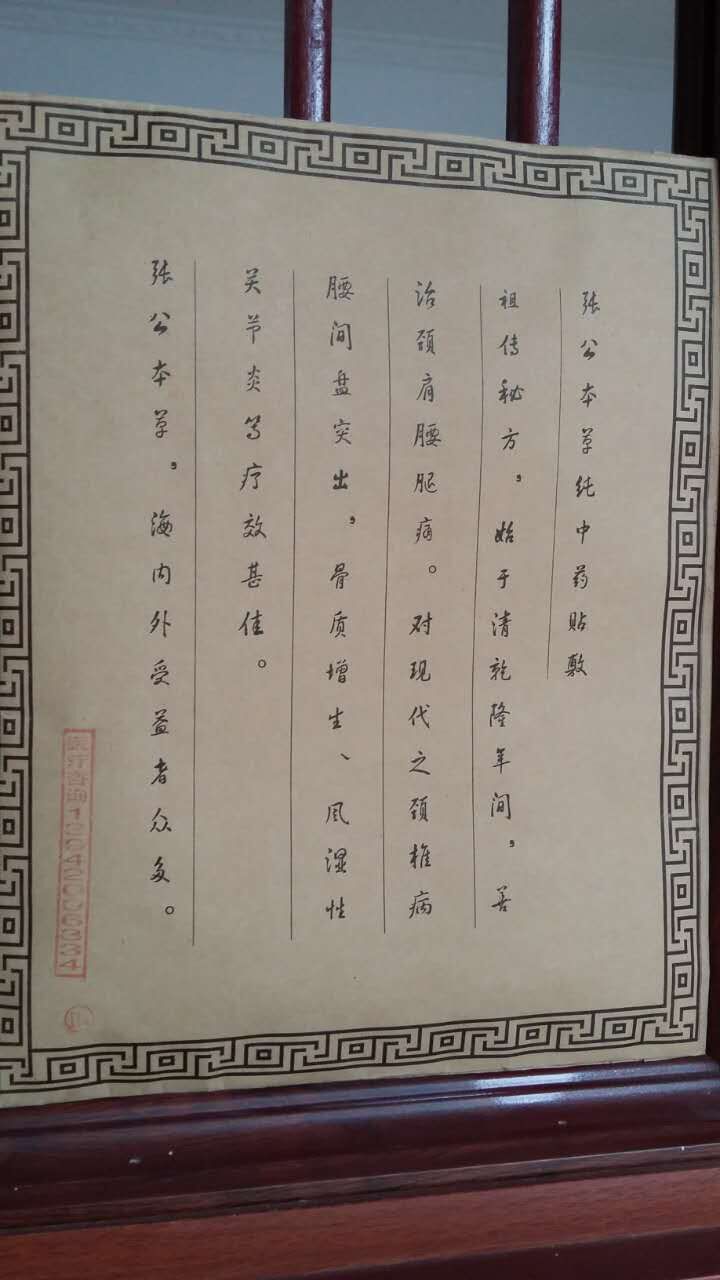 张公本草纯中药贴敷
祖传秘方，始于清乾隆年间，善
治颈肩腰腿痛。对现代之颈椎病
腰间盘突出，骨质增生、风湿性
关节炎等疗效甚佳。
张公本草，海内外受益者众多。
医疗咨询